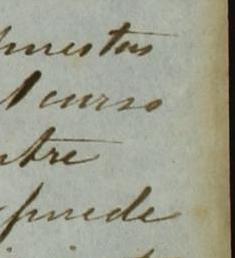 puestos
l curso
ntre
puede